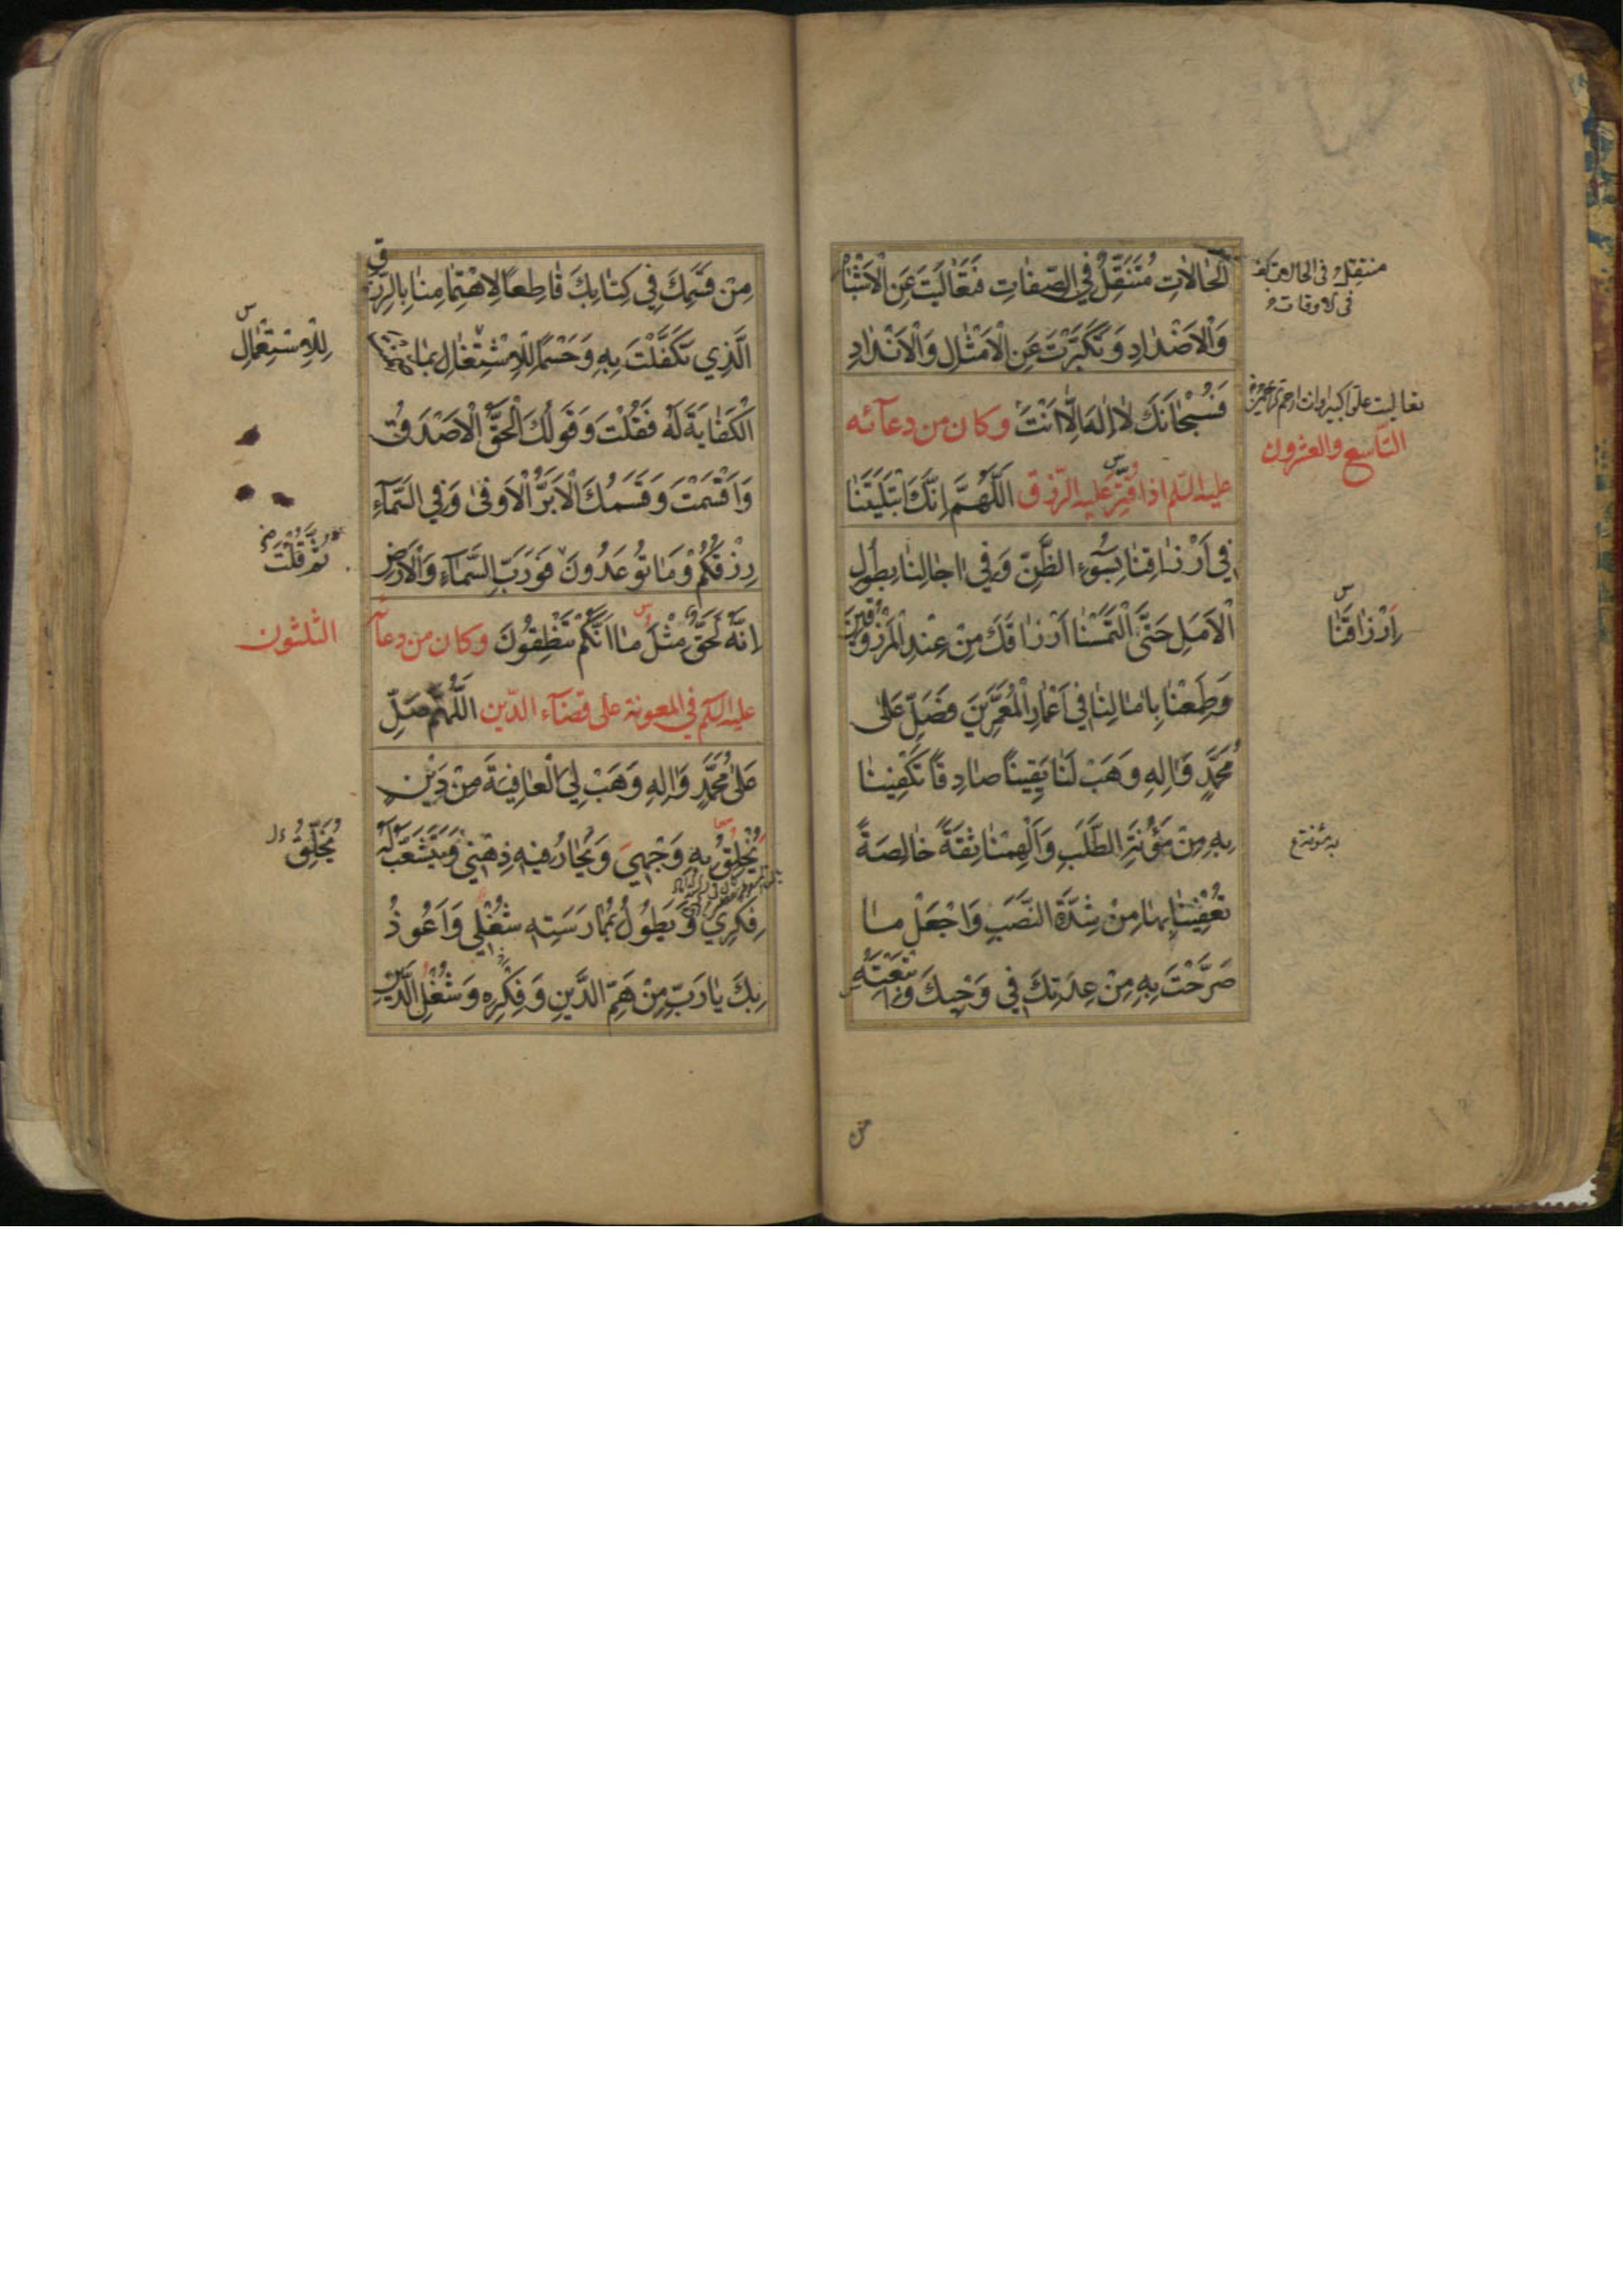 الْحَالَاتِ مُتَنَقِّلٌ فِي الصِّفَاتِ فَتَعَالَيْتَ عَنِ الْأَشْبَاهِ
وَالْأَضْدَادِ وَتَكَبَّرْتَ عَنِ الْأَمْثَالِ وَالْأَنْدَادِ
فَسُبْحَانَكَ لَا إِلٰهَ إِلَّا أَنْتَ وكان من دعآئه
عليه السّلم اذا قُتِّرَ عليه الرّزق اَللّٰهُمَّ اِنَّكَ ابْتَلَيْتَنَا
فِي اَرْزَاقِنَا بِسُوءِ الظَّنِّ وَفِي اٰجَالِنَا بِطُولِ
الْاَمَلِ حَتَّى الْتَمَسْنَا اَرْزَاقَكَ مِنْ عِنْدِ الْمَرْزُوقِينَ
وَطَمِعْنَا بِاٰمَالِنَا فِي اَعْمَارِ الْمُعَمَّرِينَ فَصَلِّ عَلٰى
مُحَمَّدٍ وَاٰلِهِ وَهَبْ لَنَا يَقِينًا صَادِقًا تَكْفِينَا
بِهِ مِنْ مَؤُنَةِ الطَّلَبِ وَاَلْهِمْنَا ثِقَةً خَالِصَةً
تُعْفِينَا بِهَا مِنْ شِدَّةِ النَّصَبِ وَاجْعَلْ مَا
صَرَّحْتَ بِهِ مِنْ عِدَتِكَ فِي وَحْيِكَ وَاَتْبَعْتَهُ
منتقل فى الحالات
فى الاوقات
التّاسع والعشرون
اَرْزَاقَنَا
مِنْ قَسَمِكَ فِي كِتَابِكَ قَاطِعًا لِاهْتِمَامِنَا بِالرِّزْقِ
الَّذِي تَكَفَّلْتَ بِهِ وَحَسْمًا لِلْاِشْتِغَالِ بِمَا ضَمِنْتَ
الْكَفَايَةَ لَهُ فَقُلْتَ وَقَوْلُكَ الْحَقُّ الْاَصْدَقُ
وَاَقْسَمْتَ وَقَسَمُكَ الْاَبَرُّ الْاَوْفٰى وَفِي السَّمَآءِ
رِزْقُكُمْ وَمَا تُوعَدُونَ فَوَرَبِّ السَّمَآءِ وَالْاَرْضِ
اِنَّهُ لَحَقٌّ مِثْلَ مَا اَنَّكُمْ تَنْطِقُونَ وكان من دعآئه
عليه السّلم في المعونة على قضآء الدّين اَللّٰهُمَّ صَلِّ
عَلٰى مُحَمَّدٍ وَاٰلِهِ وَهَبْ لِيَ الْعَافِيَةَ مِنْ دَيْنٍ
يُخْلِقُ بِهِ وَجْهِي وَيَحَارُ فِيهِ ذِهْنِي وَيَتَشَعَّبُ لَهُ
فِكْرِي وَيَطُولُ بِمُمَارَسَتِهِ شُغْلِي وَاَعُوذُ
بِكَ يَا رَبِّ مِنْ هَمِّ الدَّيْنِ وَفِكْرِهِ وَشُغْلِ الدَّيْنِ
لِلْاِسْتِعْمَالِ
ثُمَّ قُلْتَ
الثّلثون
يُخَلِّقُ